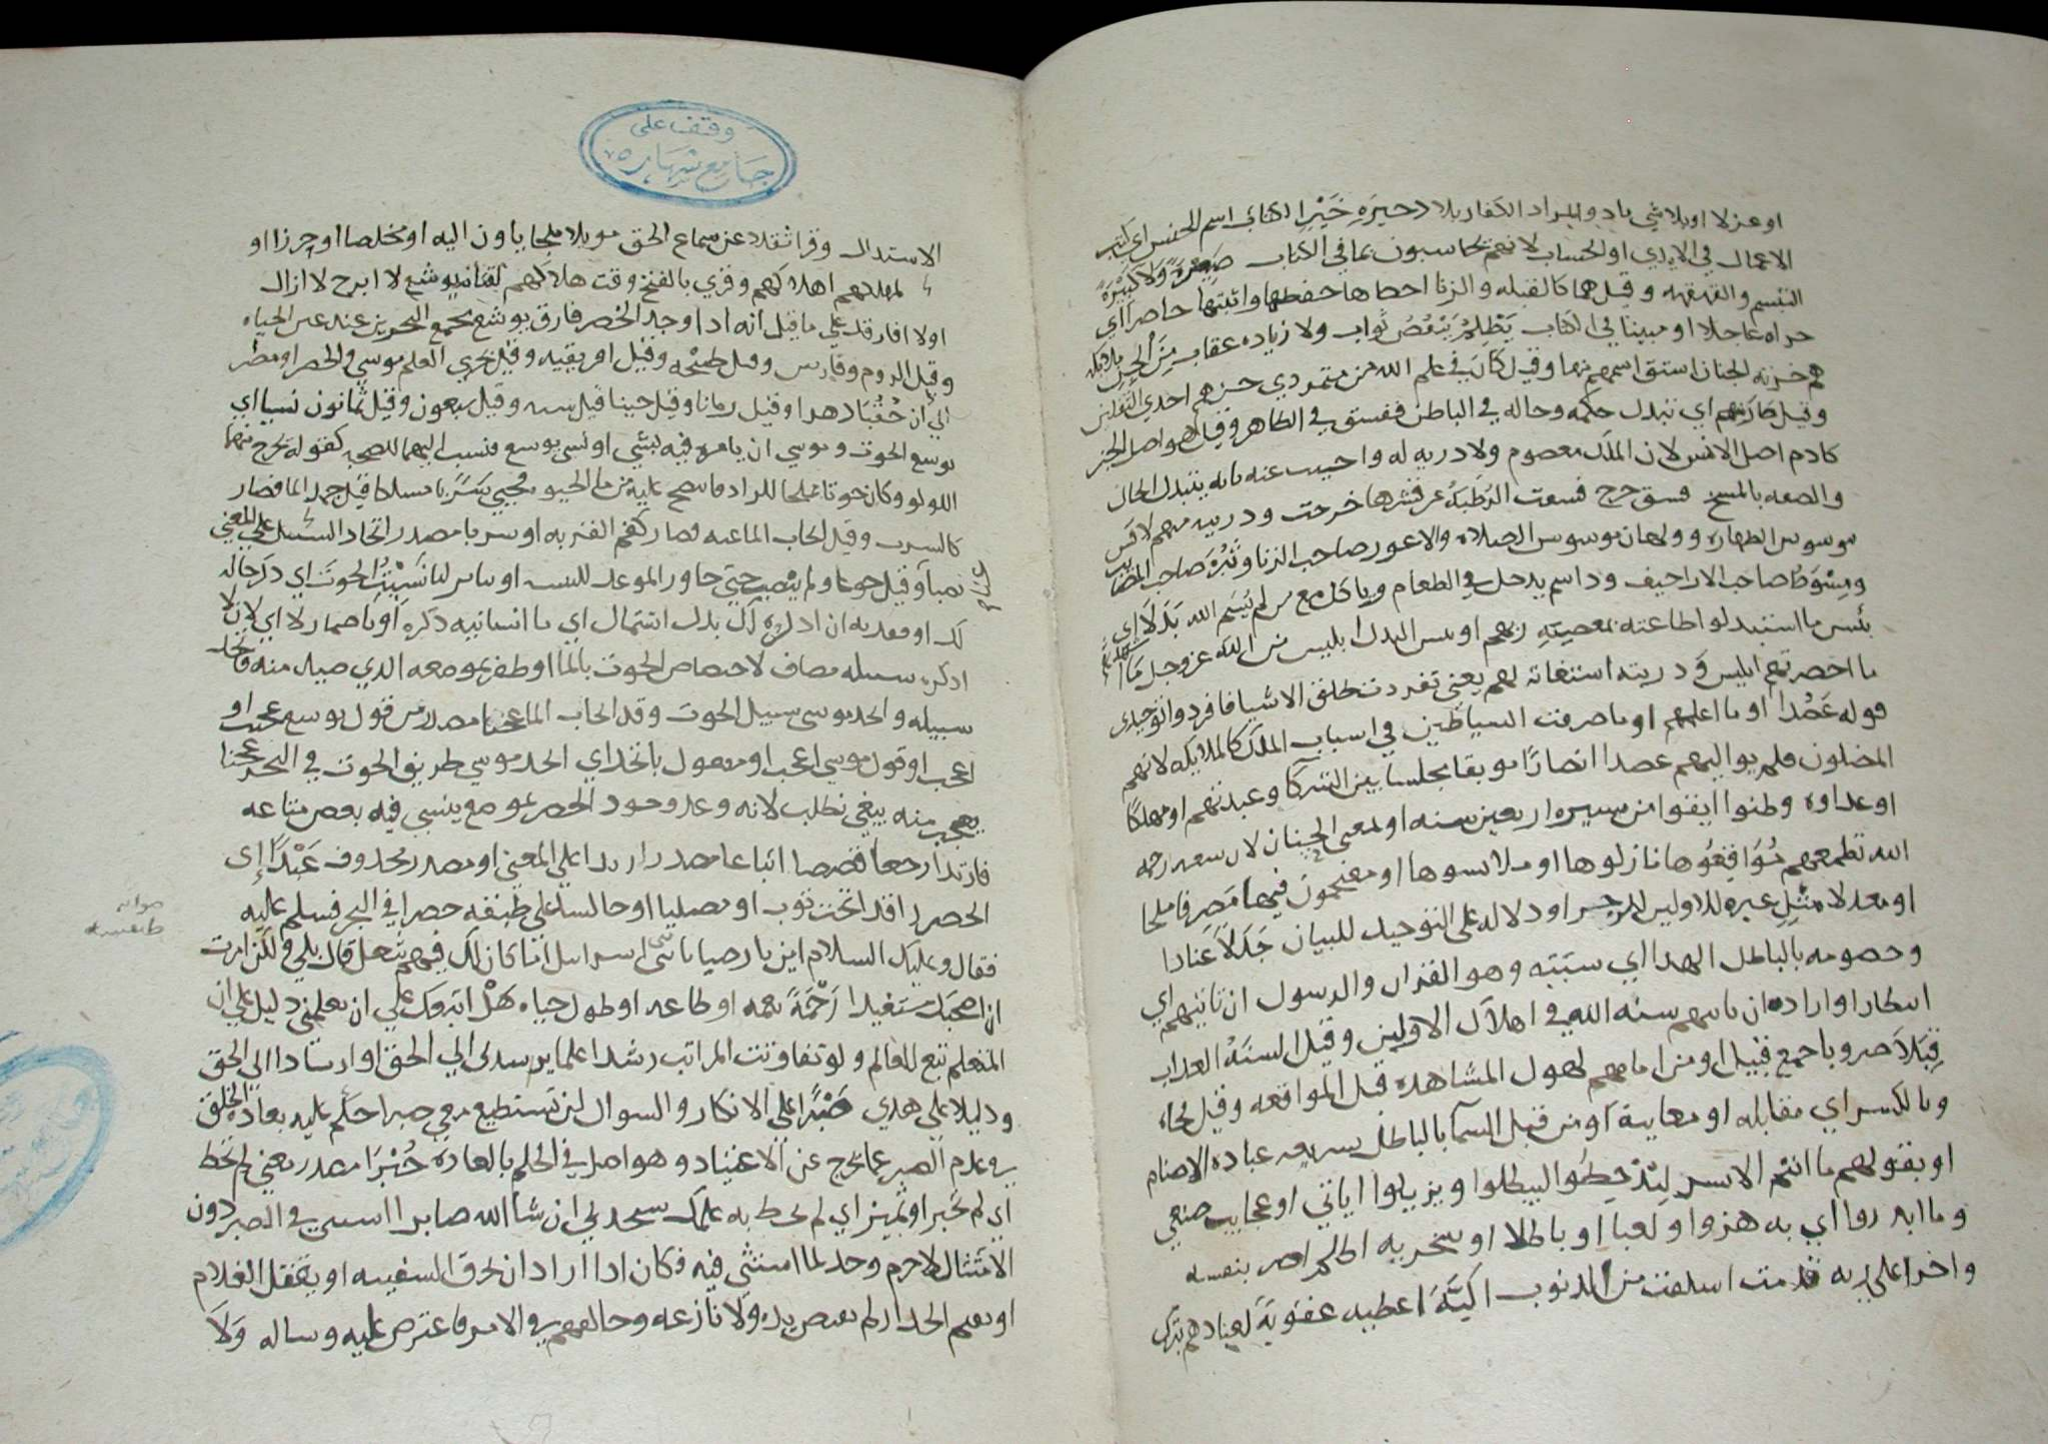 او عزلا او بلا شي باد والمراد الكفار بلا دحيره خَيْرِ الكتاب اسم الجنس اي كتب
الاعمال في الايدي او الحساب لانهم محاسبون بما في الكتاب صَغِيرَةً وَلَا كَبِيْرَةً
التبسم والقهقهه وقيل هما كالقبله والزنا احصاها حفظها واثبتها حاضرا اي
جزاه عاجلا او مبينا في الكتاب يَظْلِمُ يَنْقُصُ ثواب ولا زياده عقاب مِنَ الْجِنِّ
هم خزنه الجنان استق اسمهم منها وقيل كان في علم الله من متمردي جنهم احدي
وقيل صار منهم اي تبدل حكمه وحاله في الباطن ففسق في الظاهر وقيل هو اصل الجن
كادم اصل الانس لان الملك معصوم ولا دريه له واجيب عنه بانه يتبدل الحال
والصفه بالمسخ فسق خرج فسقت الرُّطَبَةُ عن قشرها خرجت ودريته منهم لاقس
موسوس الطهاره وولهان موسوس الصلاه والاعور صاحب الزنا وثَبْرُ صاحب المصايب
ومِسْوَط صاحب الاراجيف وداسم يدخل في الطعام وياكل مع من لم يُسَم الله بَدَلًا اي
بئس ما استبدلوا طاعته بمعصية ربهم او بئس البدل ابليس من الله عز وجل مَا
ما احضرتهم ابليس و دريته استغاثه لهم يعني تفردت بخلق الاشيا فافردوا توحيدي
قوله عَضُدا او ما اعلمهم او ما صرفت الشياطين في اسباب الملك كالملايكه لانهم
المضلون فلم يواليهم عضدا انصارا موبقا مجلسا بين الشركا وعبدتهم او مهلكا
او عداوه وظنوا ايقنوا من مسيره اربعين سنه او لمعنى الجنان لان سعه رحمه
الله تطمعهم مُوَاقِعُوها نازلوها او ملابسوها او مقتحمون فيها مَصْرِفا ملجا
او معدلا مَثَلٍ عبره للاولين او دلاله علي التوحيد للبيان جَدَلًا عنادا
وخصومه بالباطل الهدا اي سببه وهو القران والرسول ان تاتيهم اي
انتظار او اراده ان تاتيهم سنه الله في اهلاك الاولين وقيل السنة العداب
قِبَلًا ضروبا جمع قبيل او من امامهم لهول المشاهده قبل المواقعه وقيل فجاه
وبالكسر اي مقابله او معاينة او من قبل السما بالباطل بشريعه عباده الاصنام
او بقولهم ما انتم الا بشر لِيُدْحِضُوا ليبطلوا ويزيلوا اياتي او عجايب صنعي
وما اندروا اي به هزوا او لعبا او باطلا او سخريه اظلم اضر بنفسه
واجرا علي ربه قدمت اسلفت من الدنوب اكِنَّةً اغطيه عقوبة لعنادهم بترك
وقف على
جامع شهاره
الاستدلال وقرا ثقلا عن سماع الحق موبلا ملجا ياون اليه او مخلصا او حرزا او
لمهلكهم اهلاكهم وقري بالفتح وقت هلاكهم لِفَتَاه يوشع لا ابرح لا ازال
اولا افارقك علي ما قيل انه ادا وجد الخضر فارق يوشع مجمع البحرين عند عين الحياه
وقيل الروم وفارس وقيل طنجه وقيل افريقيه وقيل بحري العلم موسي والخضر او مضر
الي ان حُقُبًا دهرا وقيل زمانا وقيل حينا قيل سنه وقيل سبعون وقيل ثمانون نسيا اي
يوشع الحوت وموسي ان يامره فيه بشي او نسي يوشع فنسب اليهما للصحبه كقوله يخرج منهما
اللولو وكان حوتا مملحا للزاد فانضح عليه من ما الحيوه فحيي سَرَبًا مسلكا قيل جمد الما فصار
كالسرب وقيل انجاب الما عنه فصار كفم القربه او سربا مصدر اتخاد السبيل علي المعني
نصبا وقيل جوعا ولم ينصب حتي جاوز الموعد نَسِيْتُ الحُوتَ اي دكر حاله
لك او فقدته ان ادكره لك بدل اشتمال اي ما انسانيه دكره او باضمار لا اي لان لا
ادكره سبيله مضاف لاختصاص الحوت بالما او طفر بموضعه الدي حييى منه واتخد
سبيله واتخد موسي سبيل الحوت وقد انجاب الما عجبا مصدر من قول يوشع عجبت او
اعجب او قول موسي اعجب او مفعول باتخد اي اتخد موسي طريق الحوت في البحر عجبا
يتعجب منه نبغي نطلب لانه وعد وجود الخضر بموضع ينسي فيه بعض متاعه
فارتدا رجعا قصصا اتباعا مصدر ارتدا علي المعني او مصدر محدوف عَبْدًا اي
الخضر راقدا تحت ثوب او مصليا او جالسا علي طنفسه خضرا في البحر فسلم عليه
فقال وعليك السلام اين بارضنا يا نبي اسراييل اما كان لك فيهم شغل قال بلي ولكن امرت
ان اصحبك مستفيدا رَحْمَةً نعمه او طاعه او طول حياه هَلْ اتبعك علي ان تعلمني دليل علي ان
المتعلم تبع للعالم ولو تفاوتت المراتب رشدا علما يرشدني الي الحق او ارشادا الي الحق
ودليلا علي هدي صَبْرًا علي الانكار والسوال لن تستطيع معي صبرا حكم عليه بعادة الخلق
في عدم الصبر عما يخرج عن الاعتياد وهو اصل في الحكم بالعاده خُبْرًا مصدر يعني لم تحط
اي لم تخبر او تميز اي لم تحط به علمك ستجدني ان شا الله صابرا استثني في الصبر دون
الامتثال لا جرم وجد لما استثني فيه فكان ادا اراد ان يخرق السفينه او يقتل الغلام
او يقيم الجدار لم يقبض يده ولا نازعه وخالفهم في الامر فاعترض عليه وساله وَلَا